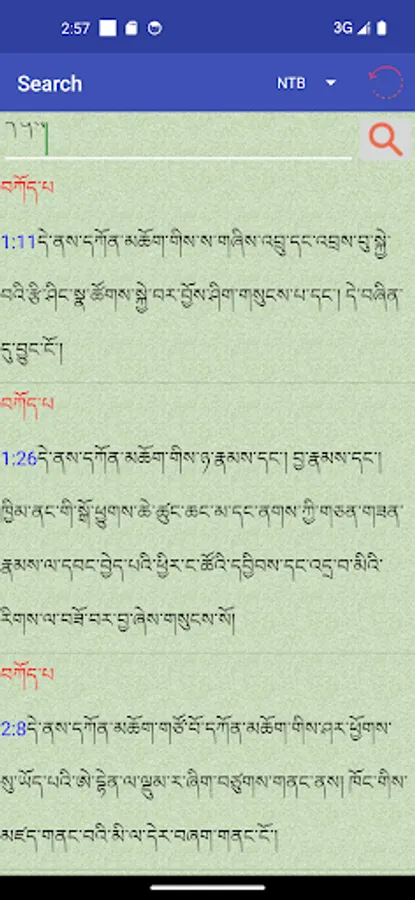 2:57
3G
Search
NTB
བཀོད་པ
1:11དེ་ནས་དཀོན་མཆོག་གིས་ས་གཞིས་འབྲུ་དང་འབྲས་བུ་སྐྱེ་
བའི་རྩི་ཤིང་སྣ་ཚོགས་སྐྱེ་བར་བྱོས་ཤིག་གསུངས་པ་དང་། དེ་བཞིན་
དུ་བྱུང་ངོ་།
བཀོད་པ
1:26དེ་ནས་དཀོན་མཆོག་གིས་ཉ་རྣམས་དང་། བྱ་རྣམས་དང་།
ཁྱིམ་ནང་གི་སྒོ་ཕྱུགས་ཆེ་ཚུང་ཆང་མ་དང་ནགས་ཀྱི་གཅན་གཟན་
རྣམས་ལ་དབང་བྱེད་པའི་ཕྱིར་ང་ཚོའི་དབྱིབས་དང་འདྲ་བ་མིའི་
རིགས་ལ་བཟོ་བར་བྱ་ཞེས་གསུངས་སོ།
བཀོད་པ
2:8དེ་ནས་དཀོན་མཆོག་གཙོ་བོ་དཀོན་མཆོག་གིས་ཤར་ཕྱོགས་
སུ་ཡོད་པའི་ཨེ་དྷེན་ལ་ལྡུམ་ར་ཞིག་བཙུགས་གནང་ནས། ཁོང་གིས་
མཛད་གནང་བའི་མི་ལ་དེར་བཞག་གནང་ངོ་།